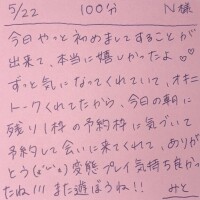 5/22 100分 N様
今日やっと初めましてすることが
出来て、本当に嬉しかったよ♡♡
ずっと気になってくれていて、オキニ
トークくれてたから、今日の朝に
残り1枠の予約枠に気づいて
予約して会いに来てくれて、ありが
とう(*˘︶˘*) 変態プレイ気持ち良かっ
たね!!! また遊ぼうね!! みと